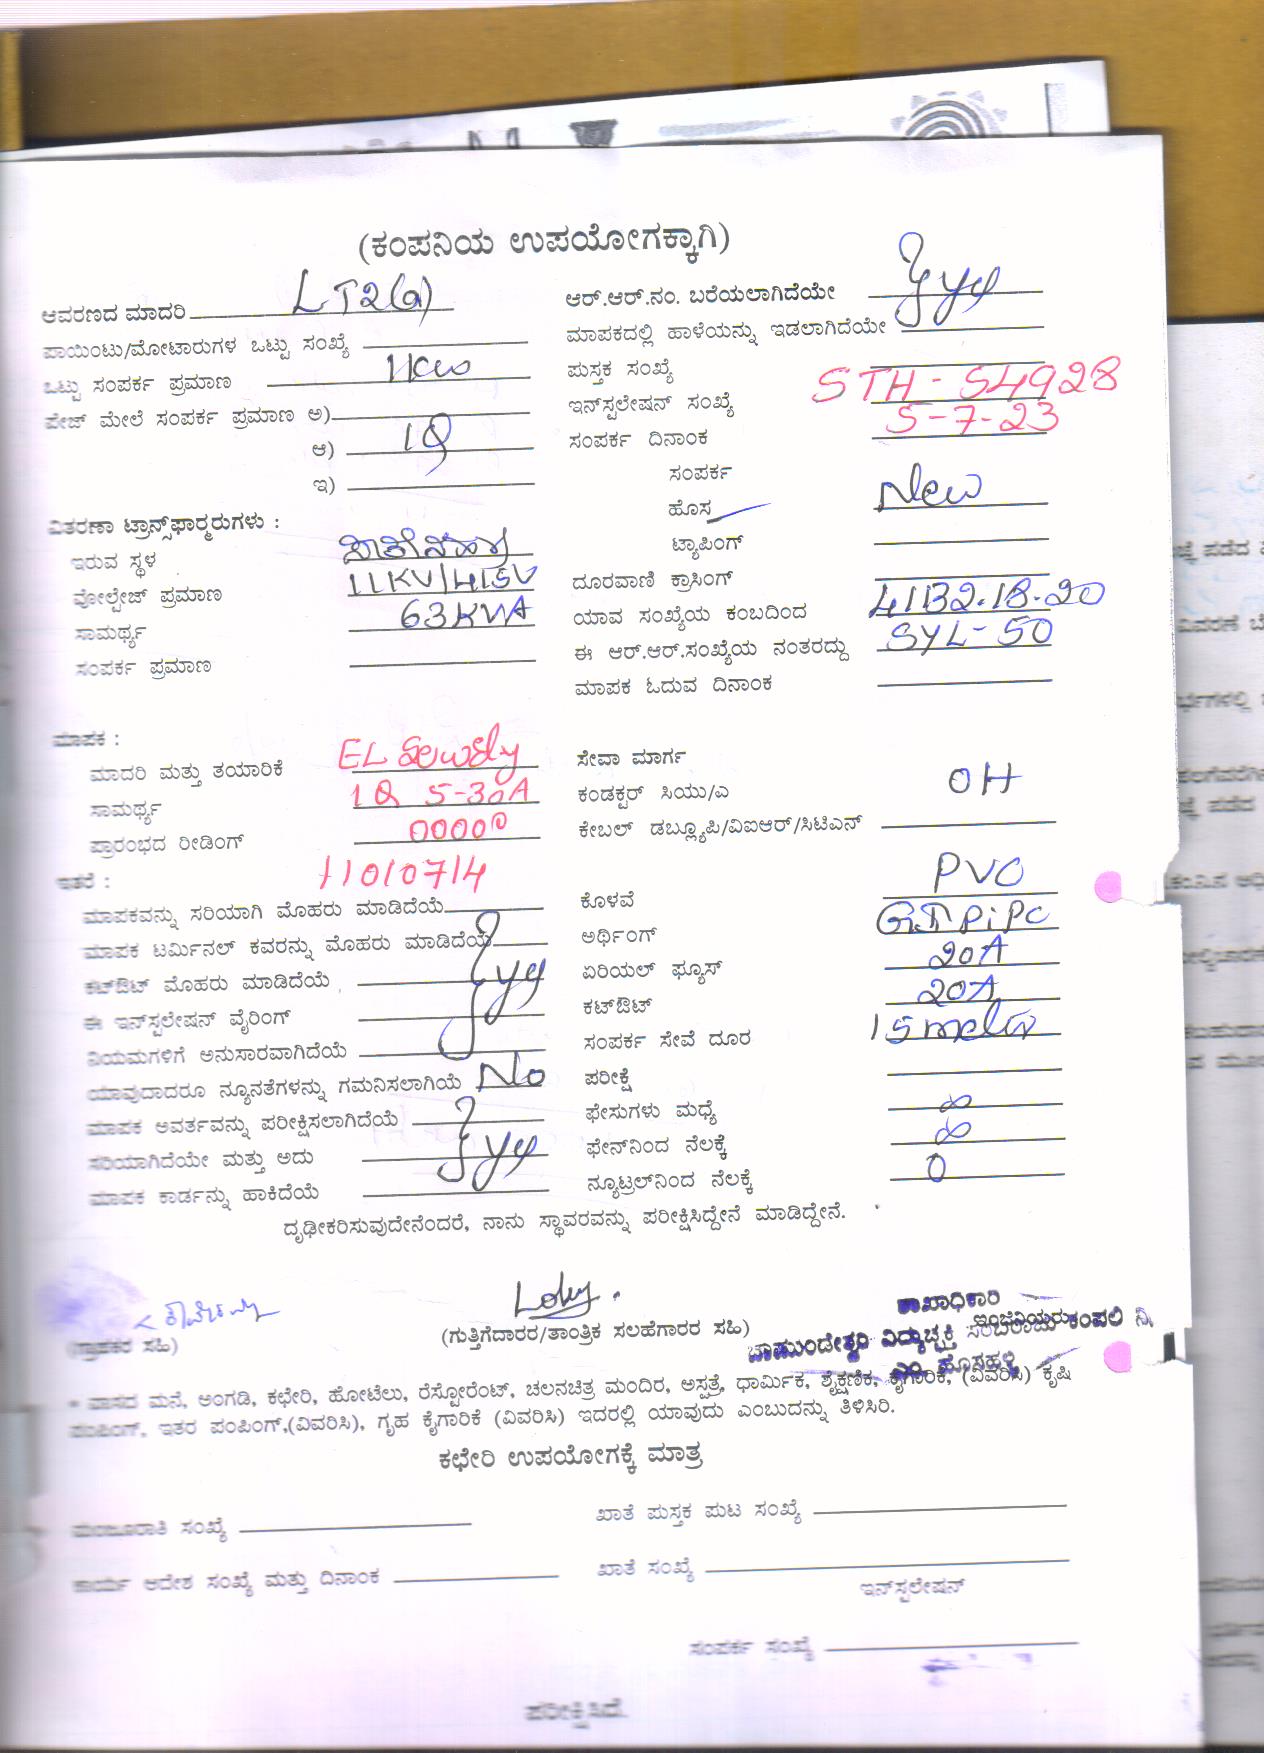 (ಕಂಪನಿಯ ಉಪಯೋಗಕ್ಕಾಗಿ)
ಆವರಣದ ಮಾದರಿ LT2(a)
ಪಾಯಿಂಟು/ಮೋಟಾರುಗಳ ಒಟ್ಟು ಸಂಖ್ಯೆ
ಒಟ್ಟು ಸಂಪರ್ಕ ಪ್ರಮಾಣ 1kw
ಪೇಜ್ ಮೇಲೆ ಸಂಪರ್ಕ ಪ್ರಮಾಣ ಅ)
ಆ) 1Q
ಇ)
ವಿತರಣಾ ಟ್ರಾನ್ಸ್‌ಫಾರ್ಮರುಗಳು :
ಇರುವ ಸ್ಥಳ
ವೋಲ್ಟೇಜ್ ಪ್ರಮಾಣ 11KV/415V
ಸಾಮರ್ಥ್ಯ 63KVA
ಸಂಪರ್ಕ ಪ್ರಮಾಣ
ಆರ್.ಆರ್.ನಂ. ಬರೆಯಲಾಗಿದೆಯೇ
ಮಾಪಕದಲ್ಲಿ ಹಾಳೆಯನ್ನು ಇಡಲಾಗಿದೆಯೇ
ಪುಸ್ತಕ ಸಂಖ್ಯೆ
ಇನ್‌ಸ್ಟಲೇಷನ್ ಸಂಖ್ಯೆ STH-54928
ಸಂಪರ್ಕ ದಿನಾಂಕ 5-7-23
ಸಂಪರ್ಕ
ಹೊಸ New
ಟ್ಯಾಪಿಂಗ್
ದೂರವಾಣಿ ಕ್ರಾಸಿಂಗ್
ಯಾವ ಸಂಖ್ಯೆಯ ಕಂಬದಿಂದ 41132.18.20
ಈ ಆರ್.ಆರ್.ಸಂಖ್ಯೆಯ ನಂತರದ್ದು SYL-50
ಮಾಪಕ ಓದುವ ದಿನಾಂಕ
ಮಾಪಕ :
ಮಾದರಿ ಮತ್ತು ತಯಾರಿಕೆ EL
ಸಾಮರ್ಥ್ಯ 1Q 5-30A
ಪ್ರಾರಂಭದ ರೀಡಿಂಗ್ 00000
11010714
ಇತರೆ :
ಮಾಪಕವನ್ನು ಸರಿಯಾಗಿ ಮೊಹರು ಮಾಡಿದೆಯೆ
ಮಾಪಕ ಟರ್ಮಿನಲ್ ಕವರನ್ನು ಮೊಹರು ಮಾಡಿದೆಯೆ
ಕಟ್‌ಔಟ್ ಮೊಹರು ಮಾಡಿದೆಯೆ
ಈ ಇನ್‌ಸ್ಟಲೇಷನ್ ವೈರಿಂಗ್
ನಿಯಮಗಳಿಗೆ ಅನುಸಾರವಾಗಿದೆಯೆ
ಯಾವುದಾದರೂ ನ್ಯೂನತೆಗಳನ್ನು ಗಮನಿಸಲಾಗಿಯೆ No
ಮಾಪಕ ಅವರ್ತವನ್ನು ಪರೀಕ್ಷಿಸಲಾಗಿದೆಯೆ
ಸರಿಯಾಗಿದೆಯೇ ಮತ್ತು ಅದು
ಮಾಪಕ ಕಾರ್ಡನ್ನು ಹಾಕಿದೆಯೆ
ಸೇವಾ ಮಾರ್ಗ
ಕಂಡಕ್ಟರ್ ಸಿಯು/ಎ OH
ಕೇಬಲ್ ಡಬ್ಲ್ಯೂಪಿ/ವಿಐಆರ್/ಸಿಟಿಎನ್
ಕೊಳವೆ PVC
ಅರ್ಥಿಂಗ್ GI Pipe
ಏರಿಯಲ್ ಫ್ಯೂಸ್ 20A
ಕಟ್‌ಔಟ್ 20A
ಸಂಪರ್ಕ ಸೇವೆ ದೂರ 15 meter
ಪರೀಕ್ಷೆ
ಫೇಸುಗಳು ಮಧ್ಯೆ ∞
ಫೇನ್‌ನಿಂದ ನೆಲಕ್ಕೆ ∞
ನ್ಯೂಟ್ರಲ್‌ನಿಂದ ನೆಲಕ್ಕೆ 0
ದೃಢೀಕರಿಸುವುದೇನೆಂದರೆ, ನಾನು ಸ್ಥಾವರವನ್ನು ಪರೀಕ್ಷಿಸಿದ್ದೇನೆ ಮಾಡಿದ್ದೇನೆ.
(ಗ್ರಾಹಕರ ಸಹಿ)
(ಗುತ್ತಿಗೆದಾರರ/ತಾಂತ್ರಿಕ ಸಲಹೆಗಾರರ ಸಹಿ)
ಶಾಖಾಧಿಕಾರಿ
ಚಾಮುಂಡೇಶ್ವರಿ ವಿದ್ಯುಚ್ಛಕ್ತಿ ಸರಬರಾಜು ಕಂಪನಿ ನಿ.
ಇಂಜಿನಿಯರು
ಎಂ. ಹೊಸಹಳ್ಳಿ
* ವಾಸದ ಮನೆ, ಅಂಗಡಿ, ಕಛೇರಿ, ಹೋಟೆಲು, ರೆಸ್ಟೋರೆಂಟ್, ಚಲನಚಿತ್ರ ಮಂದಿರ, ಆಸ್ಪತ್ರೆ, ಧಾರ್ಮಿಕ, ಶೈಕ್ಷಣಿಕ, ಕೈಗಾರಿಕೆ, (ವಿವರಿಸಿ) ಕೃಷಿ
ಪಂಪಿಂಗ್, ಇತರ ಪಂಪಿಂಗ್,(ವಿವರಿಸಿ), ಗೃಹ ಕೈಗಾರಿಕೆ (ವಿವರಿಸಿ) ಇದರಲ್ಲಿ ಯಾವುದು ಎಂಬುದನ್ನು ತಿಳಿಸಿರಿ.
ಕಛೇರಿ ಉಪಯೋಗಕ್ಕೆ ಮಾತ್ರ
ಮಂಜೂರಾತಿ ಸಂಖ್ಯೆ
ಖಾತೆ ಪುಸ್ತಕ ಪುಟ ಸಂಖ್ಯೆ
ಕಾರ್ಯ ಆದೇಶ ಸಂಖ್ಯೆ ಮತ್ತು ದಿನಾಂಕ
ಖಾತೆ ಸಂಖ್ಯೆ
ಇನ್‌ಸ್ಟಲೇಷನ್
ಸಂಪರ್ಕ ಸಂಖ್ಯೆ
ಪರೀಕ್ಷಿಸಿದೆ.